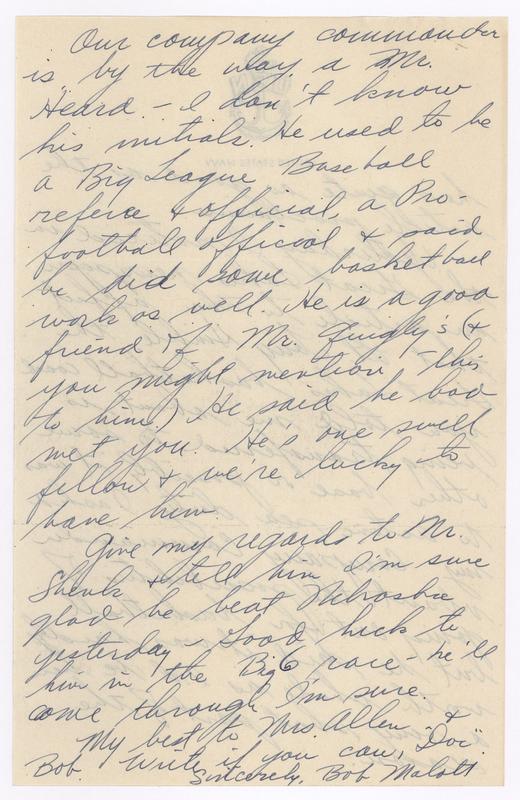 Our company commander
is by the way a Mr.
Heard. - I don't know
his initials. He used to be
a Big League Baseball
referee & official, a Pro-
football official & said
he did some basketball
work as well. He is a good
friend of Mr. Quigly's (&
you might mention this
to him.) He said he had
met you. He's one swell
fellow & we're lucky to
have him.
Give my regards to Mr.
Shenk & tell him I'm sure
glad he beat Nebraska
yesterday - Good luck to
him in the Big 6 race - he'll
come through I'm sure.
My best to Mrs. Allen, "Doc" &
Bob. Write if you can,
Sincerely, Bob Malott